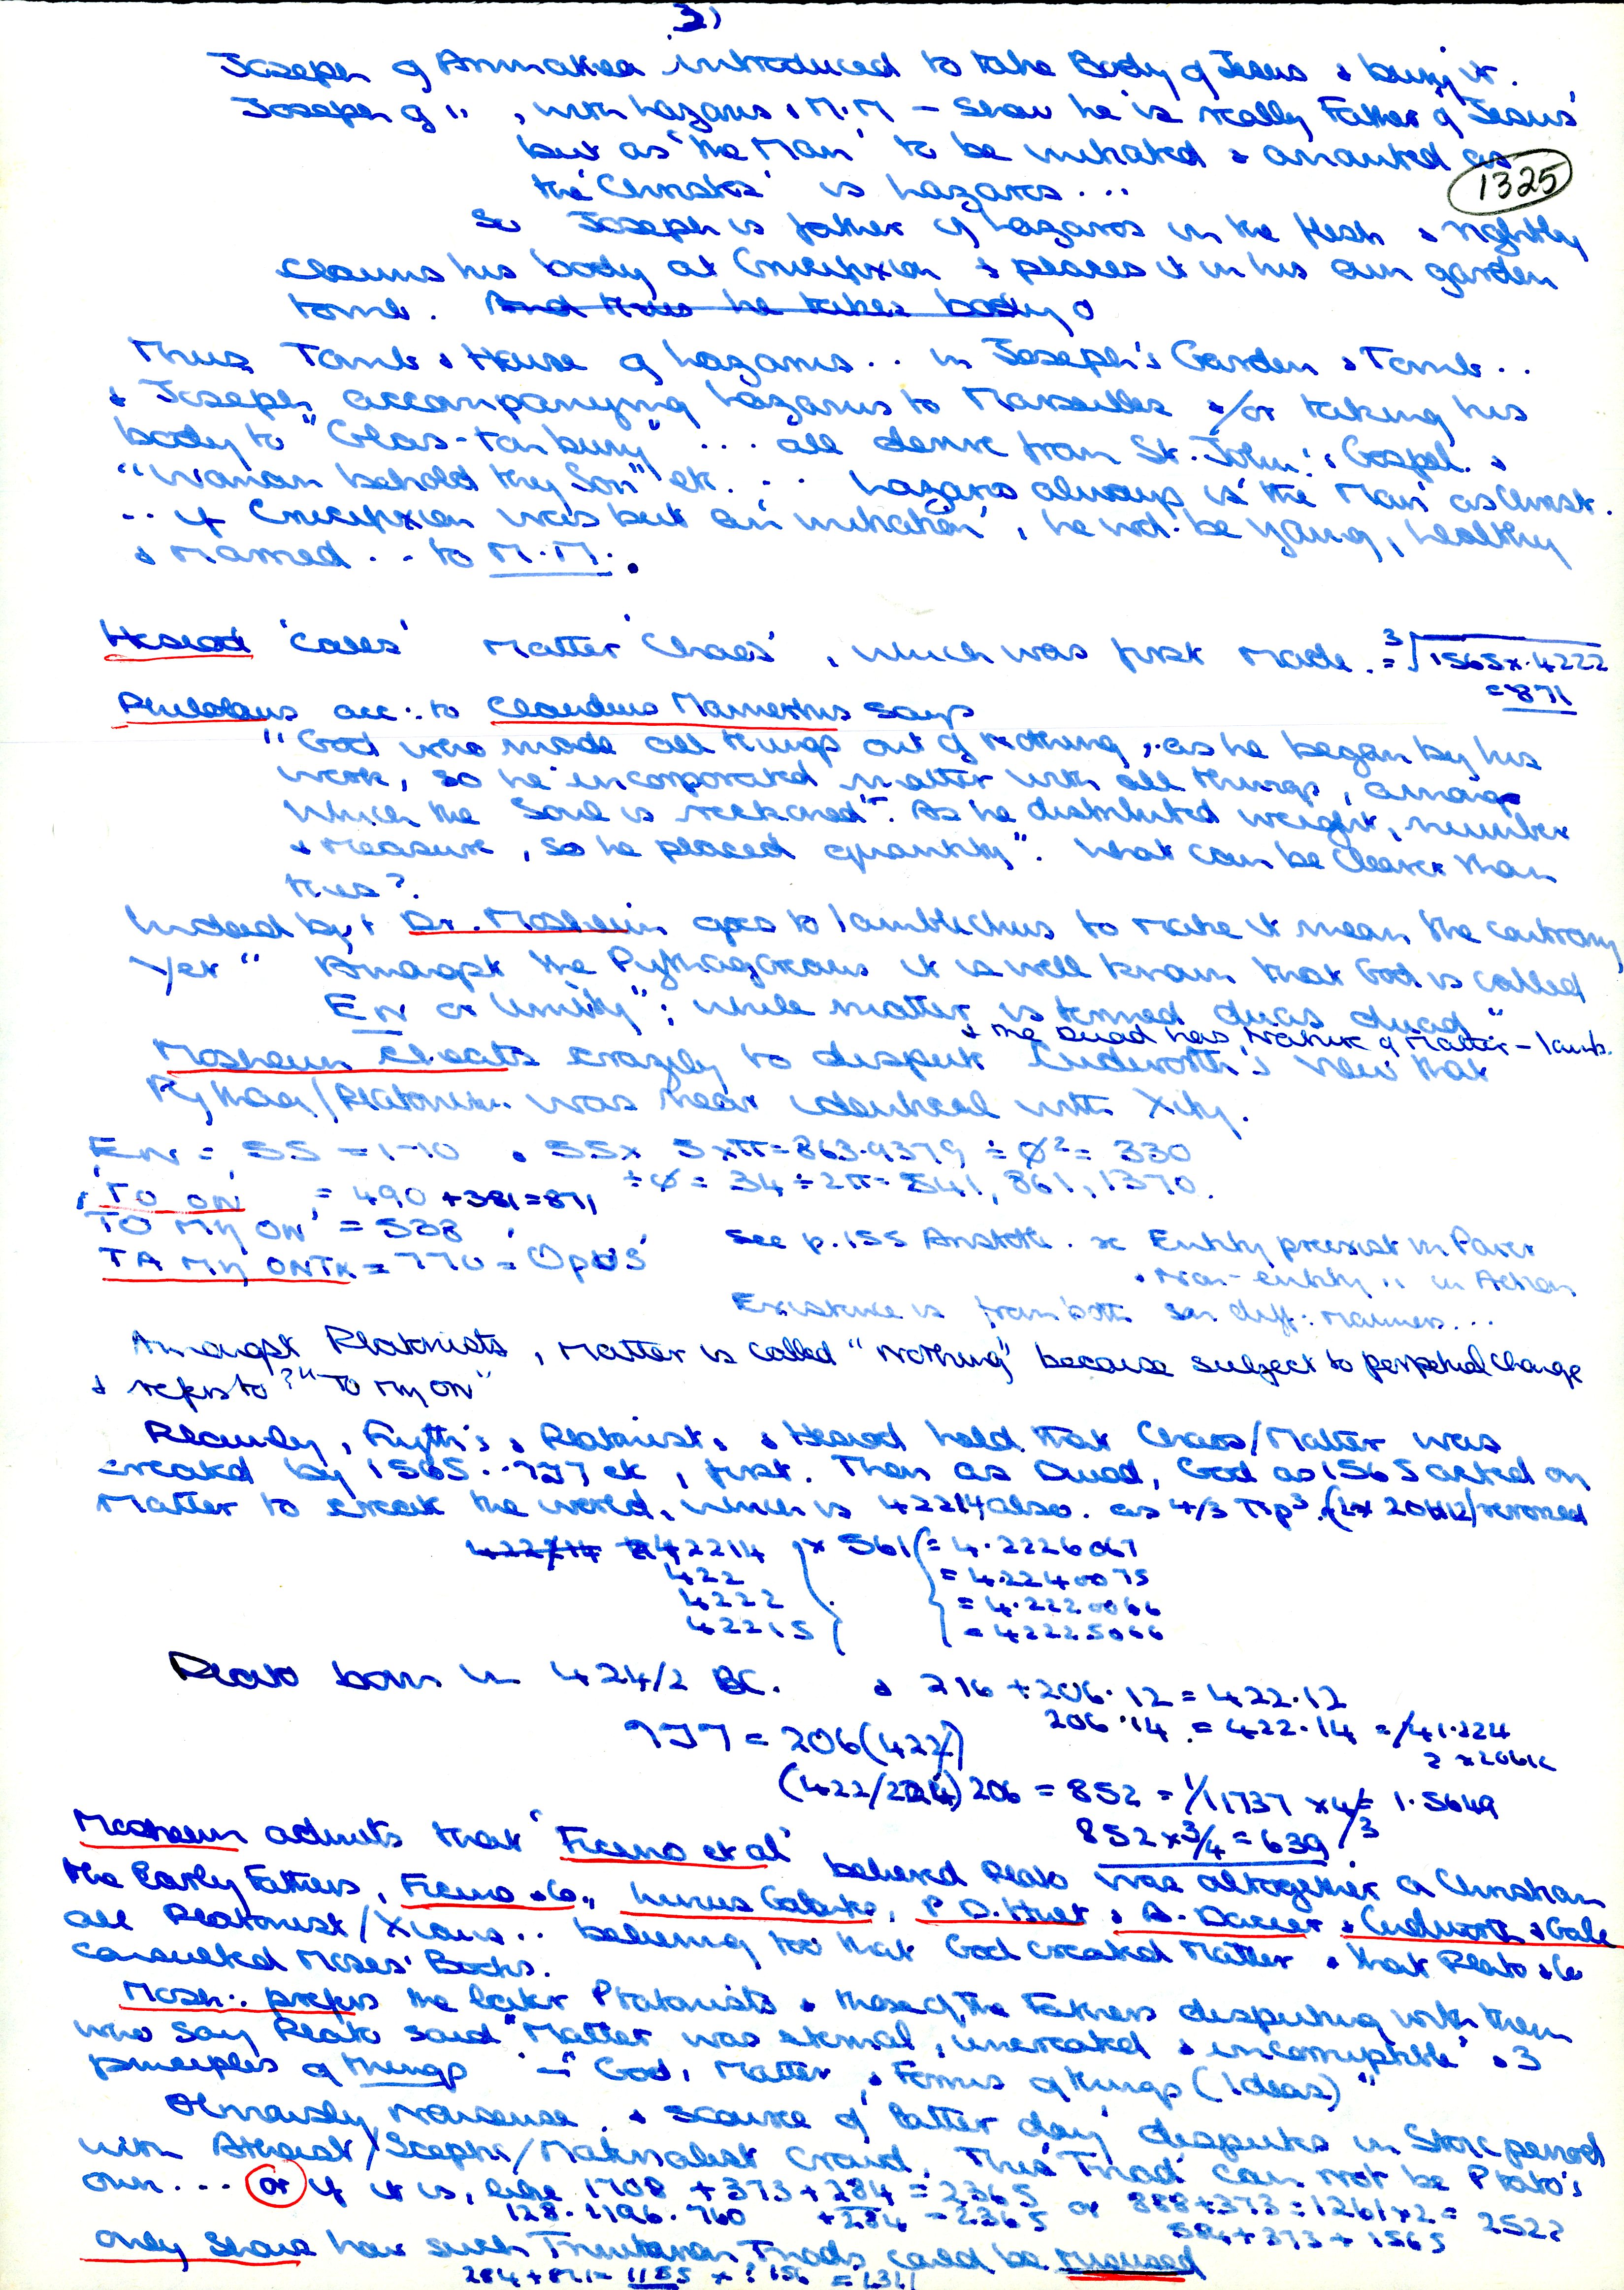 3)
Joseph of Arimathea introduced to take Body of Jesus & bury it.
Joseph of " , with Lazarus & M.M – Show he is really Father of Jesus
but as 'the Man' to be initiated & anointed as
the 'Christos' is Lazarus ...
1325
So Joseph is father of Lazarus in the flesh & rightly
claims his body at Crucifixion & places it in his own garden
tomb. And thus he takes body o
Thus Tomb & House of Lazarus .. in Joseph's Garden & Tomb ..
& Joseph accompanying Lazarus to Marseilles &/or taking his
body to "Glas-ton bury" ... all derive from St. John's Gospel. &
"Woman behold thy Son" etc. ... Lazarus always is 'the Man' as Christ.
.. if Crucifixion was but an 'initiation', he wd. be young, healthy
& married .. to M.M.
Hesiod 'calls' Matter 'Chaos', which was first made. = ³√1565 x .4222
= 871
Philolaus acc: to Claudius Mamertus says
"God who made all things out of nothing, as he began by his
work, so he incorporated matter with all things, among
which the Soul is reckoned". As he distributed weight, number
& measure, so he placed quantity". What can be clearer than
this?
Indeed by, Dr. Mosheim goes to Iamblichus to make it mean the contrary
Yet " Amongst the Pythagoreans it is well known that God is called
En or Unity"; while matter is termed duas duad"
& the Duad has Nature of Matter – Iamb.
Mosheim cheats crazily to dispute Cudworth's view that
Pythag/Platonism was near identical with Xity.
En = 55 = 1-10 . 55 x 5 x π = 863.9379 ÷ Ø² = 330
÷ Ø = 34 ÷ 2π = 541, 861, 1370.
'TO ON' = 490 + 381 = 871
'TO MH ON' = 538
TA MH ONTA = 770 =
See p.155 Aristotle. Entity preexist in Power
& Non-entity " in Action
Existence is from both in diff: manners...
Amongst Platonists, Matter is called "Nothing" because subject to perpetual change
& refers to ? "TO MH ON"
Plainly, Pyth's, Platonists, & Hesiod held that Chaos/Matter was
created by 1565 .. 777 etc, first. Then as Duad, God as 1565 acted on
Matter to create the world, which is 42214 also. as 4/3 πp³.
42214 x 561 = 4.2226067
422 = 4.2240075
4222 = 4.2220066
42215 = 42225066
Plato born in 424/2 BC. & 216 + 206.12 = 422.12
206.14 = 422.14
777 = 206(422)
206 = 852 = 1/11737 x 4/3 = 1.5649
852 x 3/4 = 639
Mosheim admits that 'Ficino et al' believed Plato was altogether a Christian
The Early Fathers, Ficino & Co., Livius Galantes, P D. Huet & A. Dacier & Cudworth & Gale
all Platonist/Xians .. believing too that God created Matter & that Plato & Co
consulted Moses' Books.
Mosh: prefers the later Platonists & those of the Fathers disputing with them
who say Plato said "Matter was eternal, uncreated & incorruptible" & 3
principles of things – "God, Matter, & Forms of things (Ideas)"
Obviously nonsense, & source of 'latter day' disputes in Stoic period
with Atheist/Sceptic/Materialist Crowd. This 'Triad' can not be Plato's
own ... or if it is, like 1708 + 373 + 284 = 2365 or 888 + 373 = 1261 x 2 = 2522
128.1196.760 + 284 = 2365 584 + 373 + 1565
Only shows how such Trinitarian Triads could be misused
284 + 871 = 1155